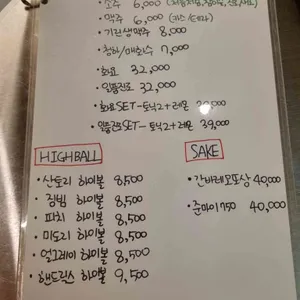 • 소주 6,000
• 맥주 6,000 (카스/테라)
• 기린생맥주 8,000
• 청하/매화수 7,000
• 화요 32,000
• 일품진로 32,000
• 화요SET-토닉2+레몬
• 일품진로SET-토닉2+레몬 39,000
HIGHBALL
• 산토리 하이볼 8,500
• 짐빔 하이볼 8,500
• 피치 하이볼 8,500
• 미도리 하이볼 8,500
• 얼그레이 하이볼 8,500
• 핸드릭스 하이볼 9,500
SAKE
• 간바레오또상 40,000
• 준마이750 40,000